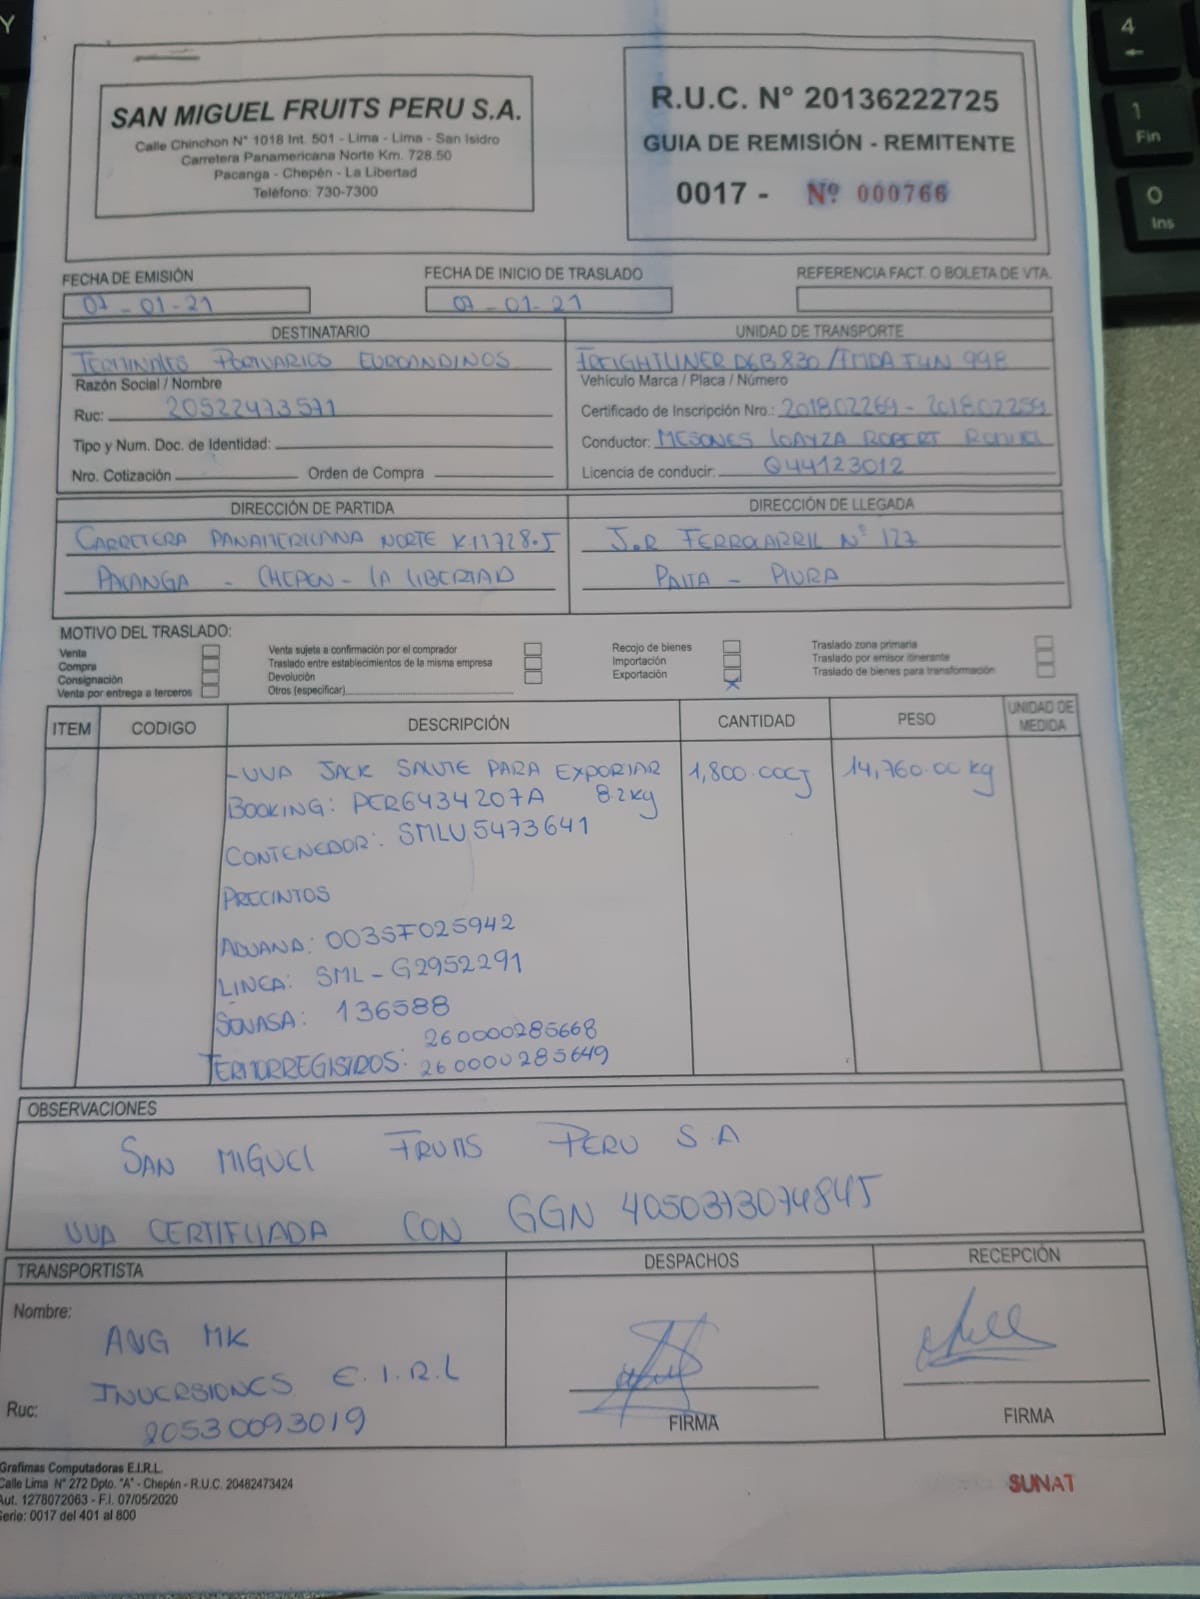 SAN MIGUEL FRUITS PERU S.A.
Calle Chinchon N° 1018 Int. 501 - Lima - Lima - San Isidro
Carretera Panamericana Norte Km. 728.50
Pacanga - Chepén - La Libertad
Teléfono: 730-7300
R.U.C. N° 20136222725
GUIA DE REMISIÓN - REMITENTE
0017 - Nº 000766
FECHA DE EMISIÓN
07-01-21
FECHA DE INICIO DE TRASLADO
07-01-21
REFERENCIA FACT. O BOLETA DE VTA.
DESTINATARIO
TERMINALES PORTUARIOS EUROANDINOS
Razón Social / Nombre
Ruc: 20522473571
Tipo y Num. Doc. de Identidad:
Nro. Cotización Orden de Compra
UNIDAD DE TRANSPORTE
FREIGHTLINER 830 / 998
Vehículo Marca / Placa / Número
Certificado de Inscripción Nro.: 201802269 - 201802259
Conductor: MESONES LOAYZA ROBERT
Licencia de conducir: Q44123012
DIRECCIÓN DE PARTIDA
CARRETERA PANAMERICANA NORTE K11728.5
PACANGA - CHEPEN - LA LIBERTAD
DIRECCIÓN DE LLEGADA
J.R FERROCARRIL N° 127
PAITA - PIURA
MOTIVO DEL TRASLADO:
Venta
Compra
Consignación
Venta por entrega a terceros
Venta sujeta a confirmación por el comprador
Traslado entre establecimientos de la misma empresa
Devolución
Otros (especificar)
Recojo de bienes
Importación
Exportación X
Traslado zona primaria
Traslado por emisor itinerante
Traslado de bienes para transformación
ITEM CODIGO DESCRIPCIÓN CANTIDAD PESO UNIDAD DE MEDIDA
-UVA JACK SALUTE PARA EXPORTAR 1,800.00CJ 14,760.00 kg
BOOKING: PER6434207A 8.2kg
CONTENEDOR: SMLU5473641
PRECINTOS
ADUANA: 003SF025942
LINEA: SML-G2952291
SENASA: 136588
260000285668
TERMORREGISTROS: 260000285649
OBSERVACIONES
SAN MIGUEL FRUITS PERU S.A
UVA CERTIFICADA CON GGN 4050373074845
TRANSPORTISTA
Nombre:
ANG MK
INVERSIONES E.I.R.L
Ruc: 20530093019
DESPACHOS
FIRMA
RECEPCIÓN
FIRMA
Grafimas Computadoras E.I.R.L.
Calle Lima N° 272 Dpto. "A" - Chepén - R.U.C. 20482473424
Aut. 1278072063 - F.I. 07/05/2020
Serie: 0017 del 401 al 800
SUNAT
4
←
1
Fin
0
Ins
Y